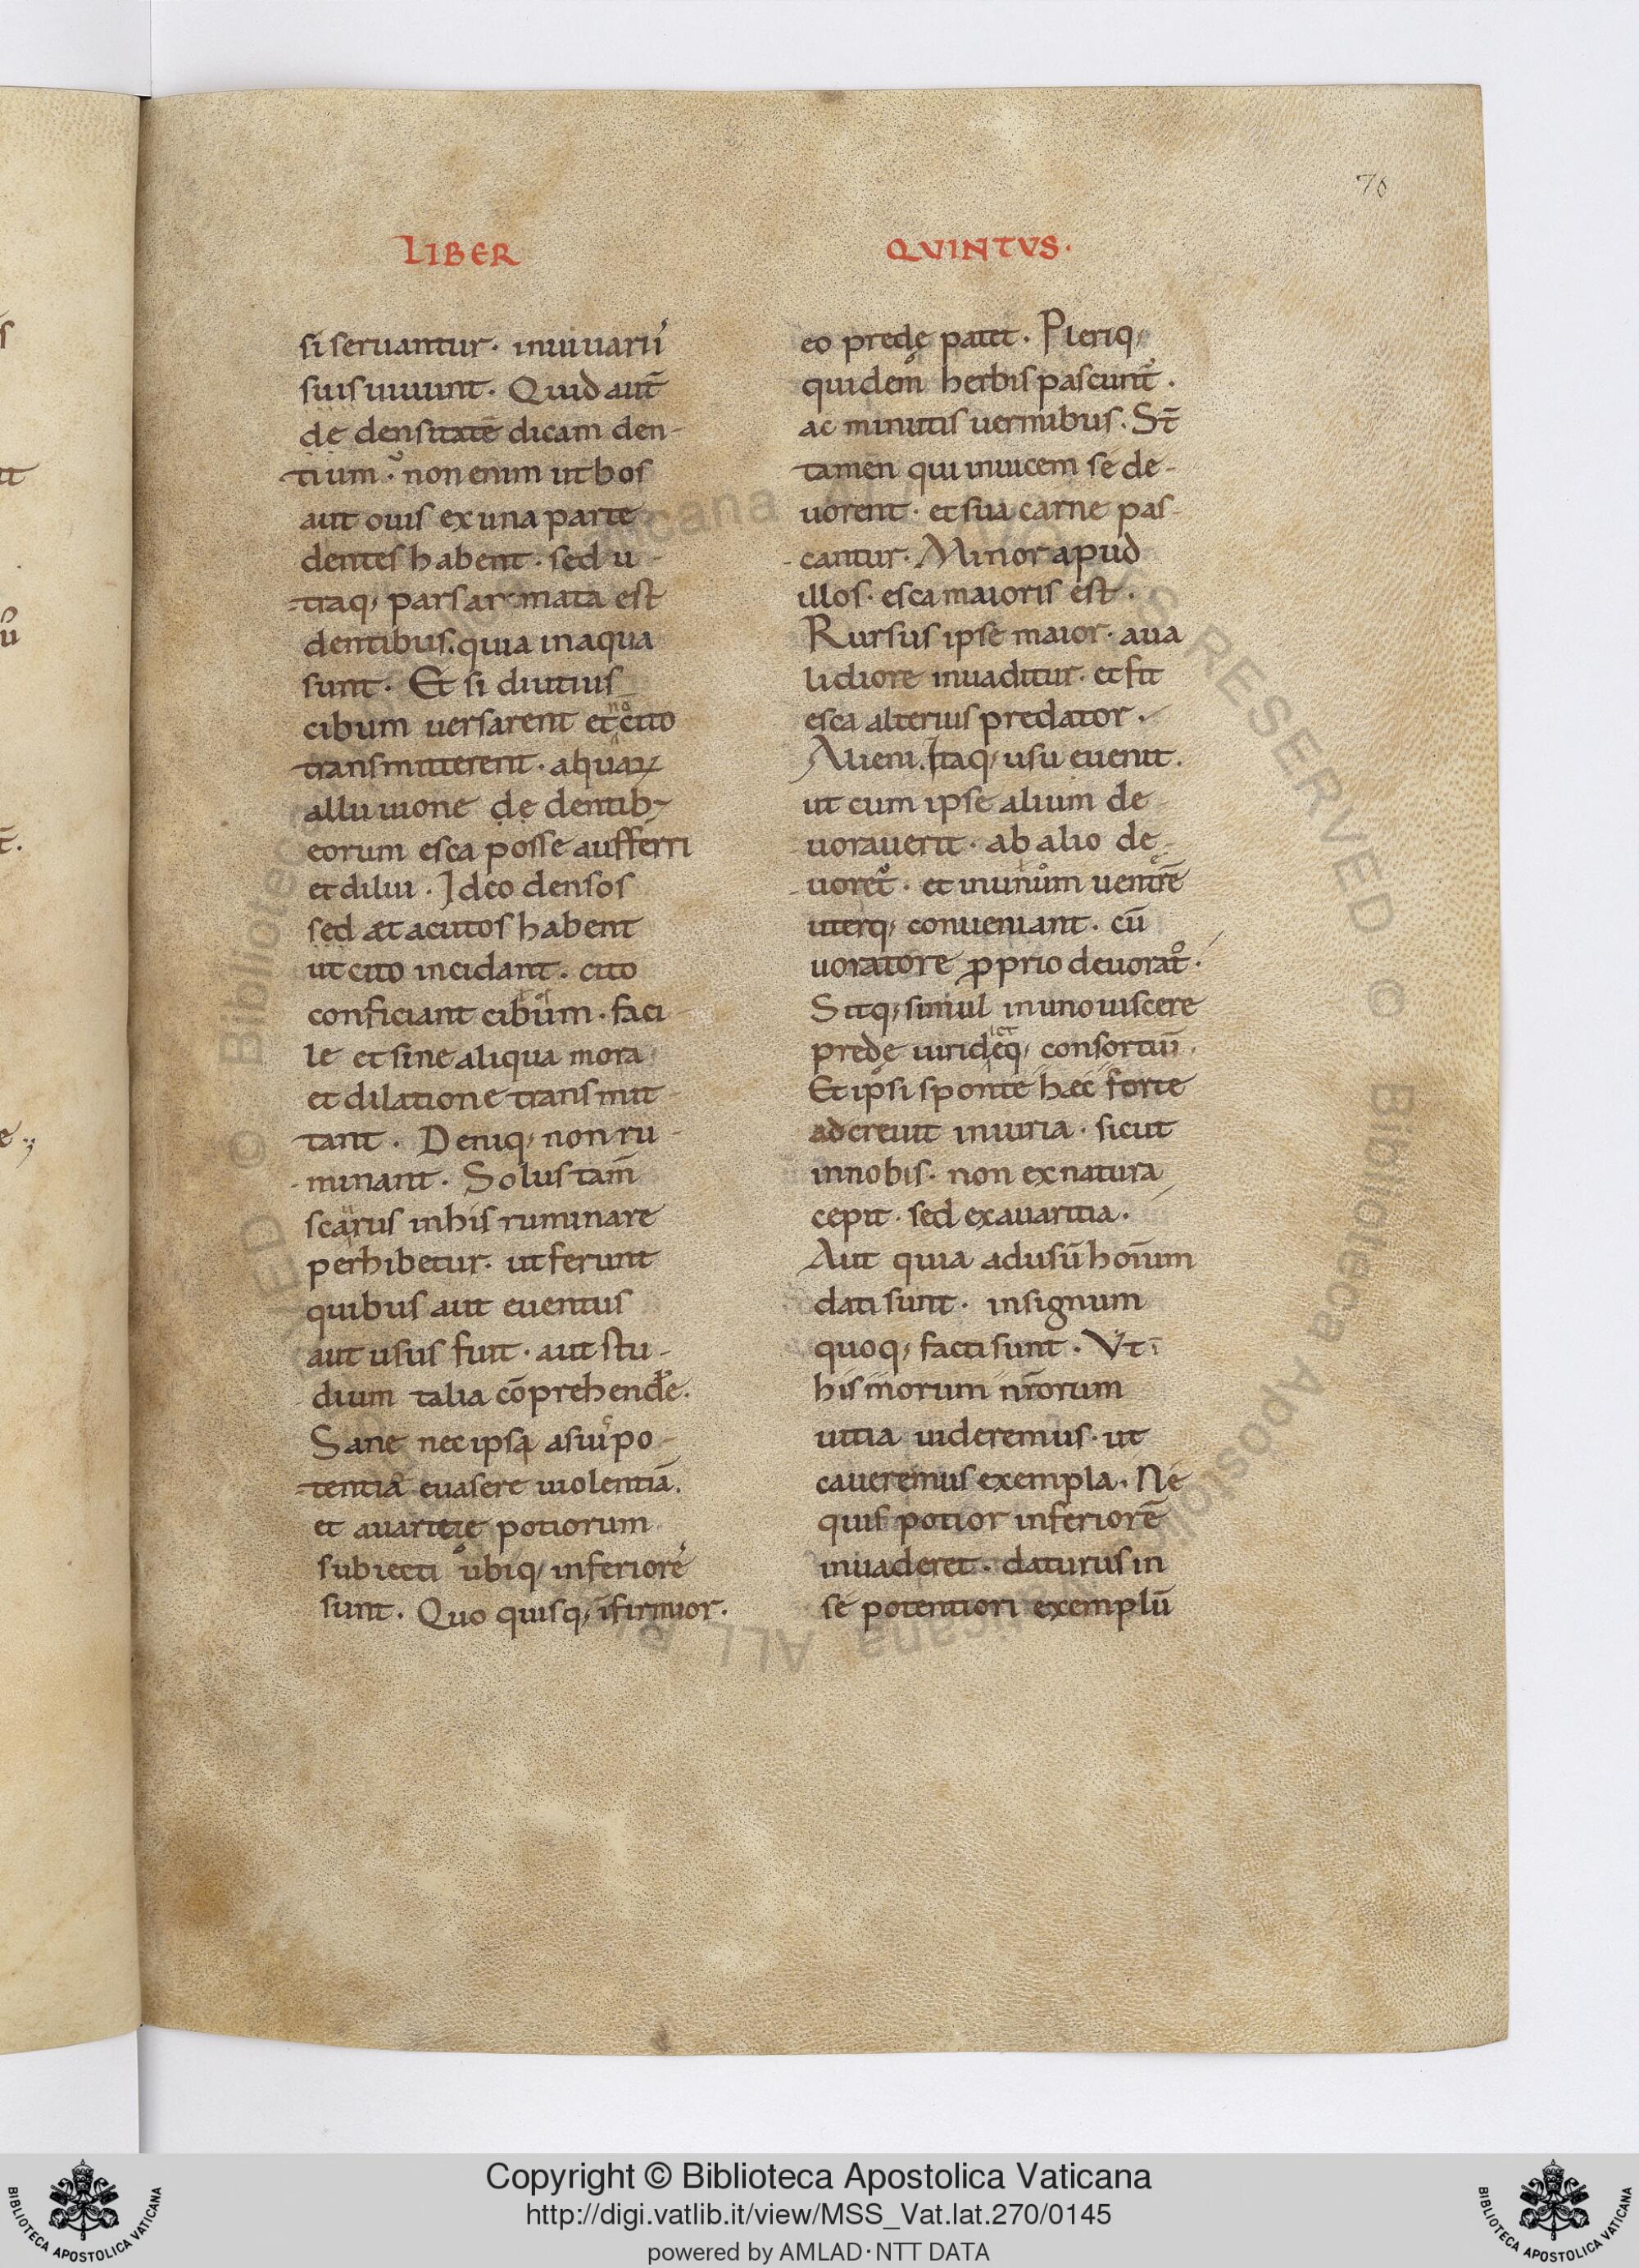 76
LIBER
QVINTVS·
si seruantur· inuiuariis
suis uiuunt· Quid aut̄
de densitatē dicam den-
tium· non enim ut bos
aut ouis ex una parte
dentes habent· sed u-
traq; pars armata est
dentibus. quia in aqua
sunt· Et si diutius
cibum uersarent et nō cito
transmitterent· aquaꝝ
alluuione de dentib;
eorum esca posse aufferri
et dilui· Ideo densos
sed æt acutos habent
ut cito incidant· cito
conficiant cibum· faci-
le et sine aliqua mora
et dilatione transmit-
tant· Deniq; non ru-
minant· Solus tam̄
scarus in his ruminare
perhibetur· ut ferunt
quibus aut euentus
aut usus fuit· aut stu-
dium talia cōprehende·
Sane nec ipsa asui po-
tentiā euasere uiolentiā.
et auaritie potiorum
subiecti ubiq; inferiore
sunt· Quo quisq; īfirmior·
eo predę patet· Pleriq;
quidem herbis pascunt̄·
ac minutis uermibus· St̄
tamen qui inuicem se de-
uorent· et sua carne pas-
cantur· Minor apud
illos· esca maioris est·
Rursus ipse maior· aua
lidiore inuaditur· et fit
esca alterius predator·
Alieni. Itaq; usu euenit·
ut cum ipse alium de-
uorauerit· ab alio de-
uoret᷑· et in unum uentrē
uterq; conueniant· cū
uoratore ꝓprio deuorat᷑·
Sitq; simul in uno uiscere
prede uindictęq; consortiū·
Et ipsi sponte hæc forte
adcreuit iniuria· sicut
in nobis· non ex natura
cepit· sed ex auaritia·
Aut quia ad usū homīum
dati sunt· in signum
quoq; facti sunt· Vt ī
his morum nr̄orum
uitia uideremus· ut
caueremus exempla· Ne
quis potior inferiorē
inuaderet· daturus in
se potentiori exemplū
Copyright © Biblioteca Apostolica Vaticana
http://digi.vatlib.it/view/MSS_Vat.lat.270/0145
powered by AMLAD·NTT DATA
BIBLIOTECA APOSTOLICA VATICANA
BIBLIOTECA APOSTOLICA VATICANA